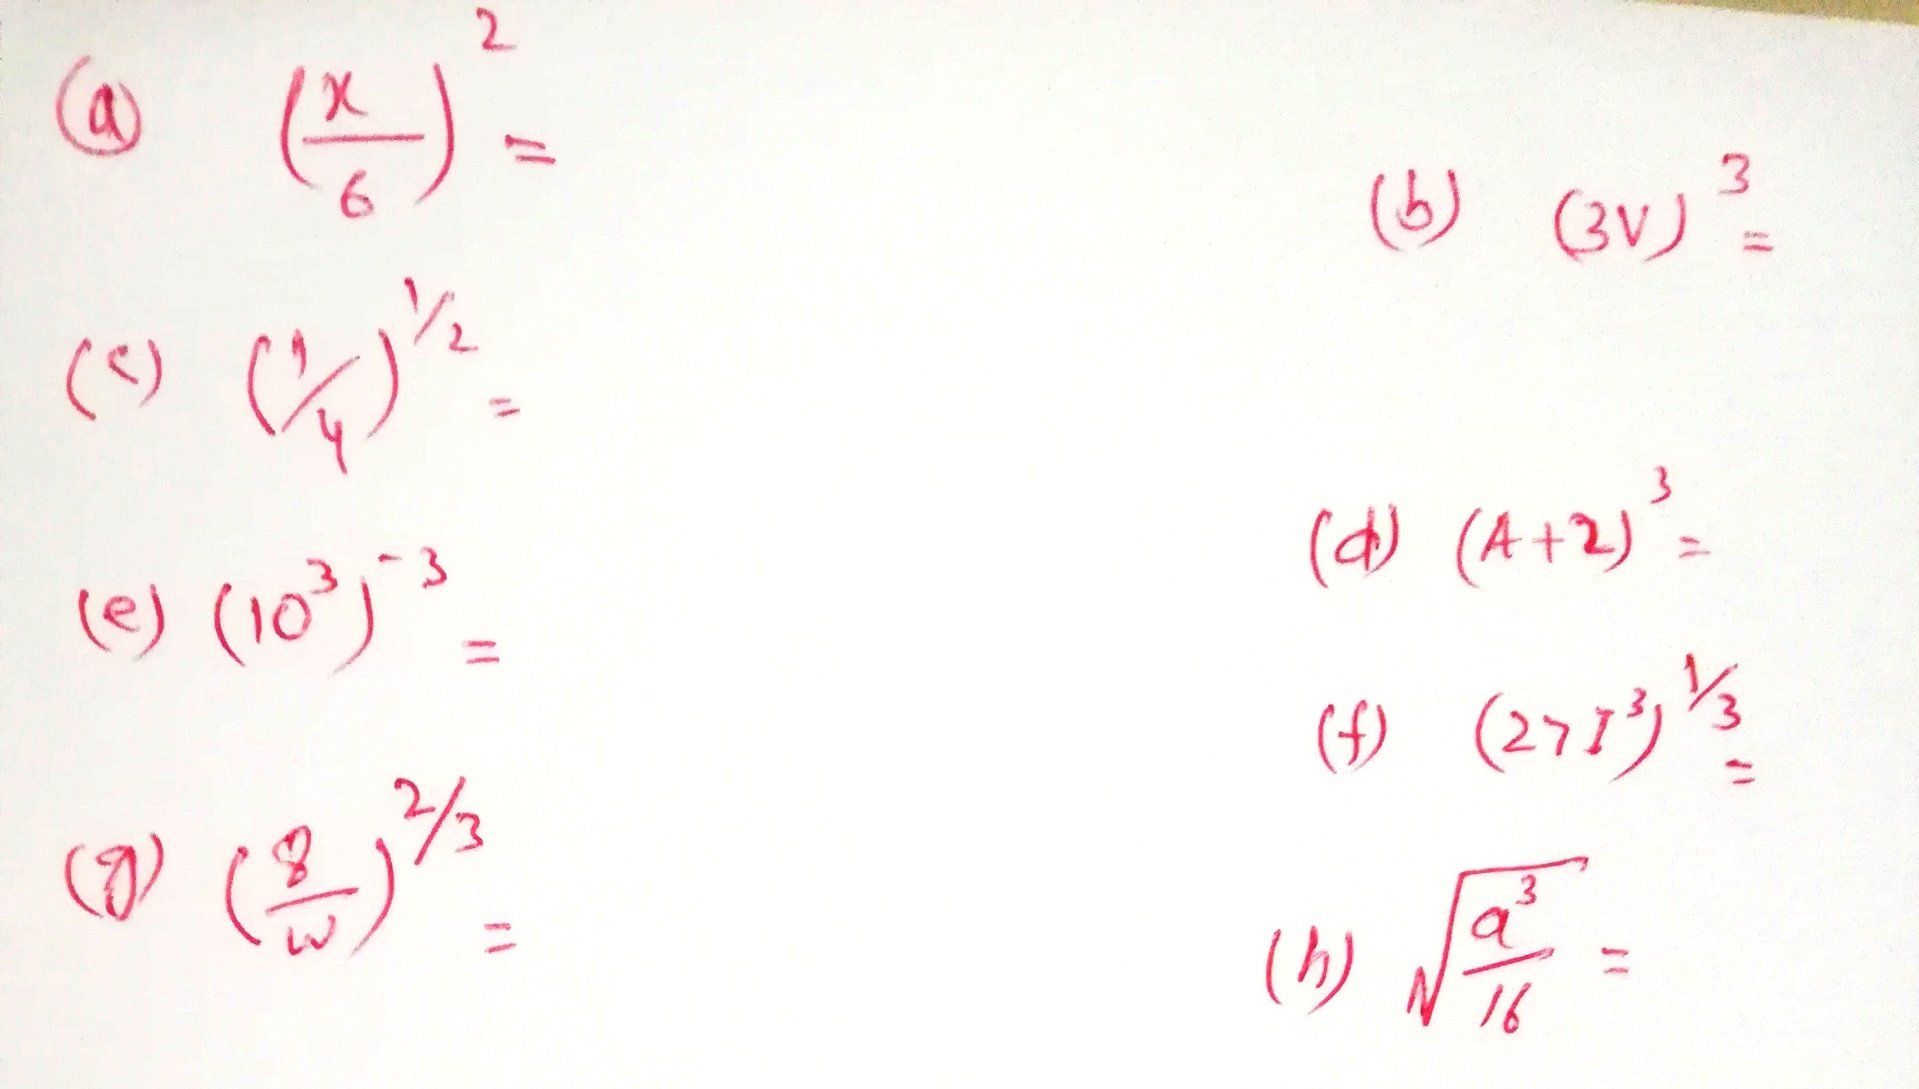 (a) (x/6)² =
(b) (3V)³ =
(c) (1/4)^1/2 =
(d) (A+2)³ =
(e) (10³)⁻³ =
(f) (27I³)^1/3 =
(g) (8/w)^2/3 =
(h) √(a³/16) =